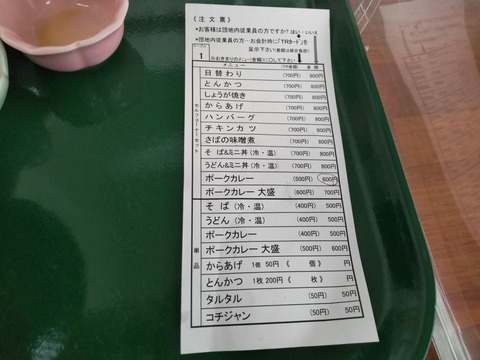 《注文票》
*お客様は団地内従業員の方ですか? はい・いいえ
*団地内従業員の方…お会計時に「TRカード」を
提示下さい
テーブル
1
※おきまりのメニュー(金額)に○して下さい
メニュー (TR金額) 金額
セルフコーナーセット
日替わり (700円) 800円
とんかつ (700円) 800円
しょうが焼き (700円) 800円
からあげ (700円) 800円
ハンバーグ (700円) 800円
チキンカツ (700円) 800円
さばの味噌煮 (700円) 800円
そば&ミニ丼(冷・温) (700円) 800円
うどん&ミニ丼(冷・温) (700円) 800円
ポークカレー (500円) 600円
ポークカレー 大盛 (600円) 700円
単品
そば (冷・温) (400円) 500円
うどん (冷・温) (400円) 500円
ポークカレー (400円) 500円
ポークカレー 大盛 (500円) 600円
からあげ 1個 50円 《 個》 円
とんかつ 1枚 200円 《 枚》 円
タルタル (50円) 50円
コチジャン (50円) 50円